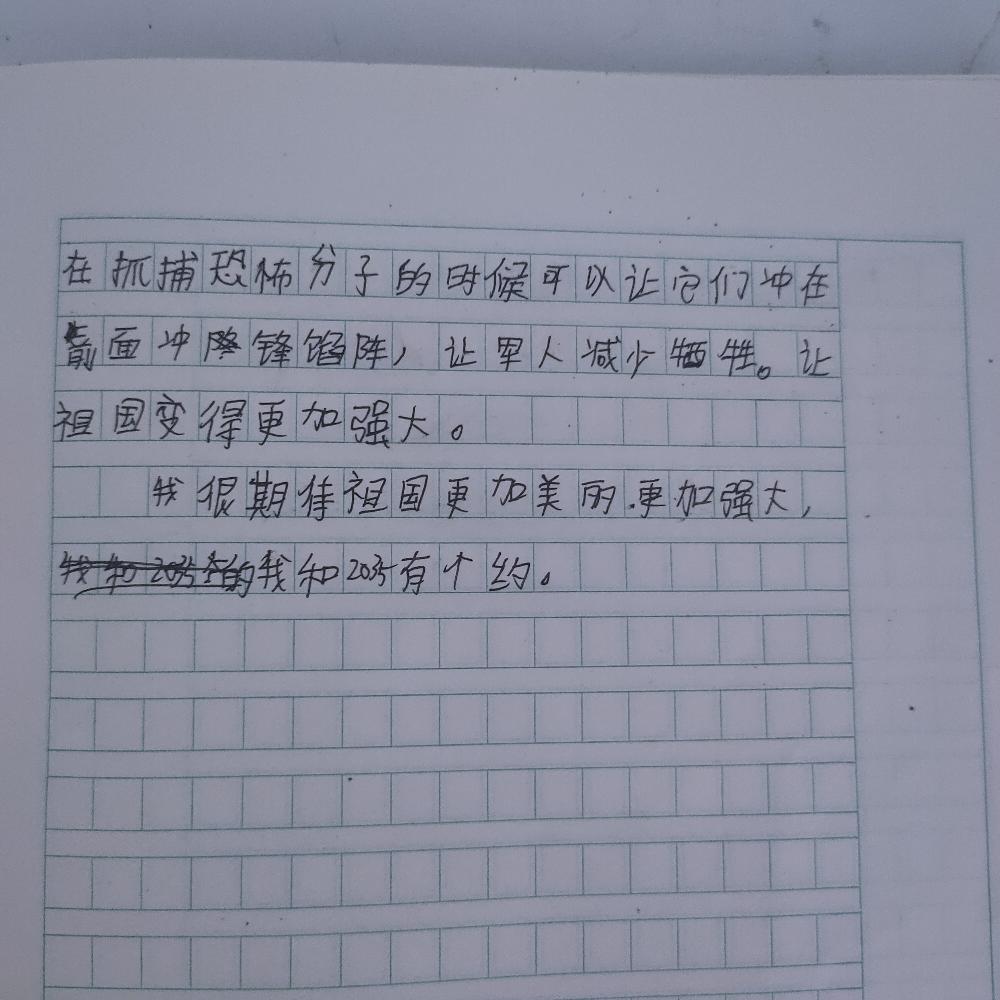 在抓捕恐怖分子的时候可以让它们冲在
前面冲锋馅阵，让军人减少牺牲。让
祖国变得更加强大。
我很期待祖国更加美丽.更加强大，
我和2035有个约。